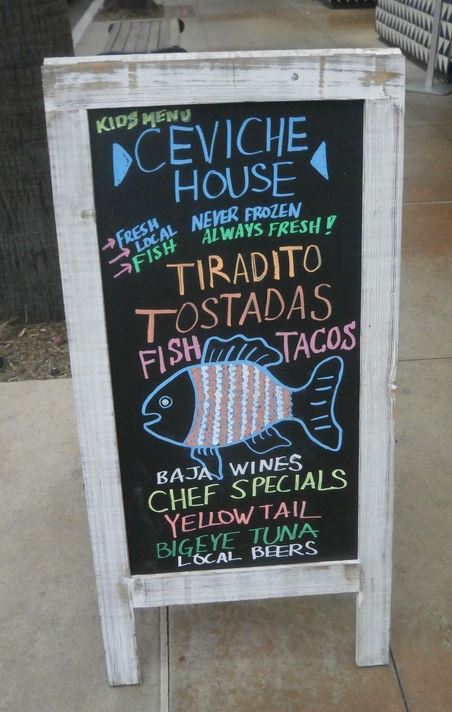 KIDS MENU
CEVICHE
HOUSE
FRESH
LOCAL
FISH
NEVER FROZEN
ALWAYS FRESH!
TIRADITO
TOSTADAS
FISH TACOS
BAJA WINES
CHEF SPECIALS
YELLOWTAIL
BIGEYE TUNA
LOCAL BEERS